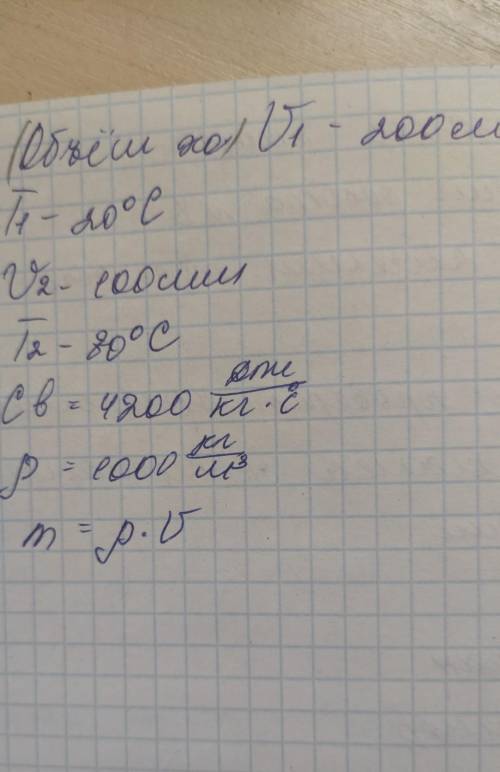 (Объём хол) V1 - 200м
T1 - 20°C
V2 - 100мл
T2 - 80°C
Cв = 4200 дж/кг·°C
ρ = 1000 кг/м³
m = ρ·V